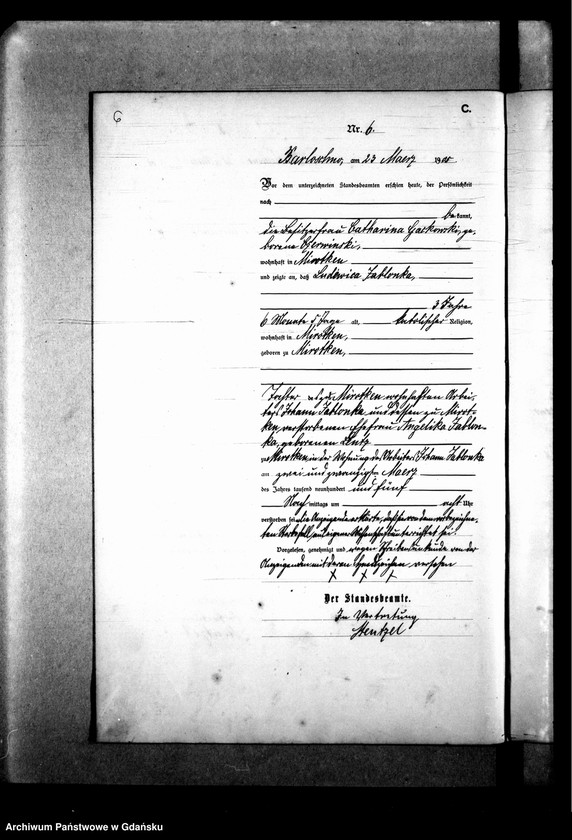 6
C.
Nr. 6.
Barloschno, am 23 Maerz 19
Vor dem unterzeichneten Standesbeamten erschien heute, der Persönlichkeit
nach
bekannt,
die Besitzerfrau Catharina Gackowski, ge-
borene Czerwinski,
wohnhaft in Mirotken
und zeigte an, daß Ludowica Jablonka,
3 Jahre
6 Monate 5 Tage alt, katolischer Religion,
wohnhaft in Mirotken,
geboren zu Mirotken,
Tochter des zu Mirotken wohnhaften Arbei-
ters Johann Jablonka und dessen zu Mirot-
ken verstorbenen Ehefrau Angelika Jablon-
ka, geborenen Lentz
zu Mirotken in der Wohnung des Arbeiters Johann Jablonka
am zwei und zwanzigsten Maerz
des Jahres tausend neunhundert und fünf
Nach mittags um acht Uhr
verstorben sei. die Anzeigende erklärte, daß sie von dem vorbezeichne-
ten Sterbefall aus eigener Wissenschaft unterrichtet sei.
Vorgelesen, genehmigt und wegen Schreibensunkunde von der
Anzeigenden mit deren Handzeichen versehen
x x x
Der Standesbeamte.
In Vertretung
Stentzel
Archiwum Państwowe w Gdańsku